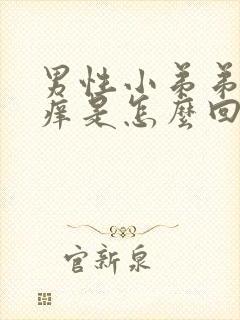 男性小弟弟
痒是怎麼回
官新泉